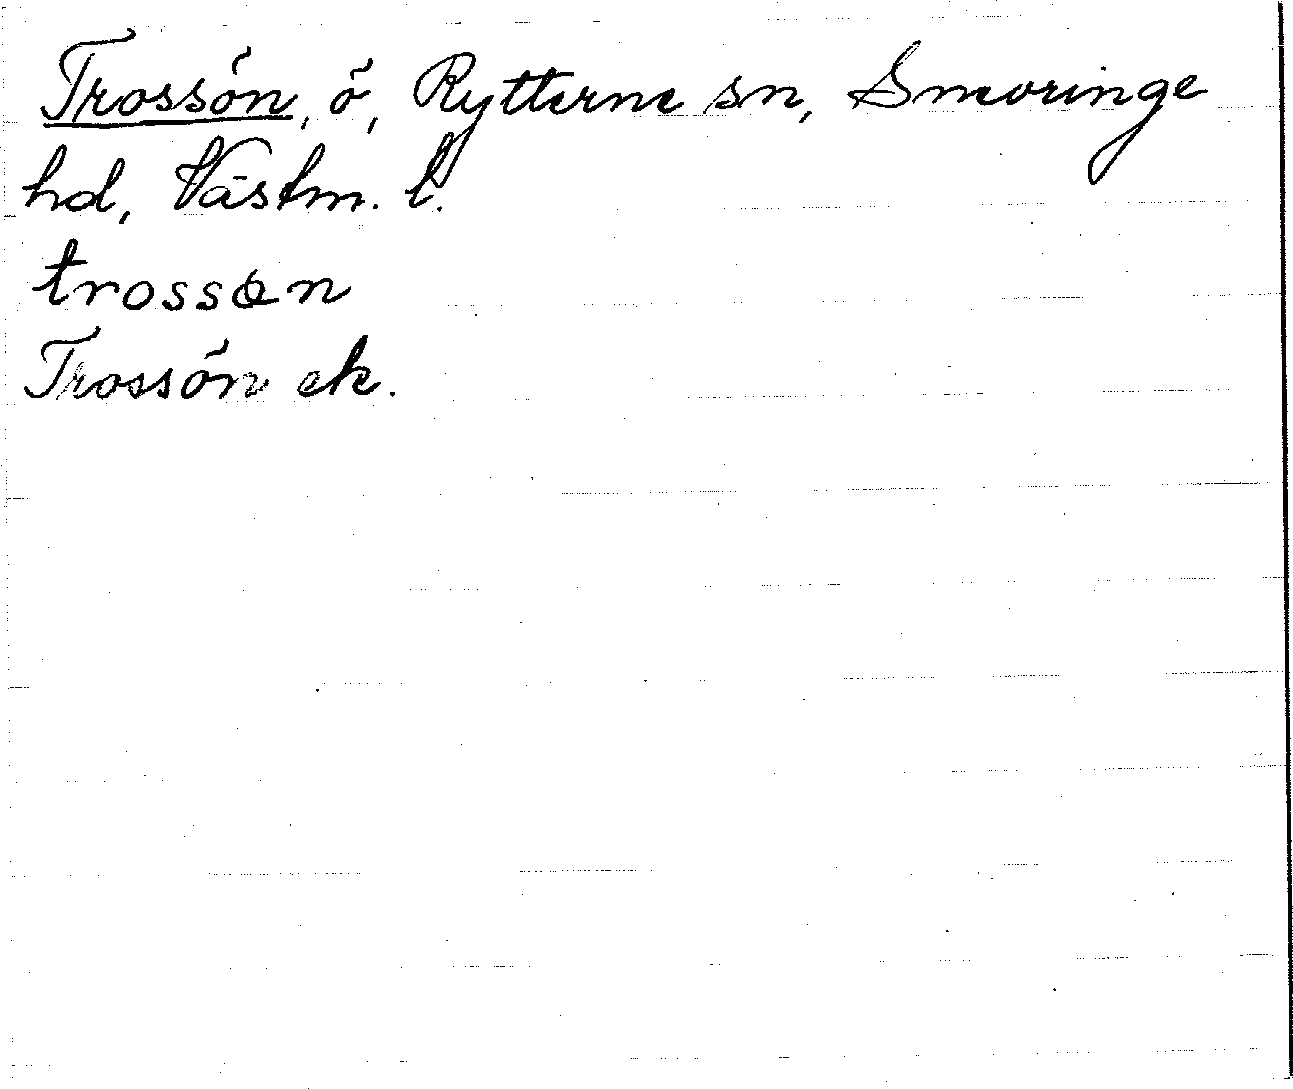 Trossön, ö, Rytterne sn, Smevringe
hd, Västm. l.
trossøn
Trossön ek.